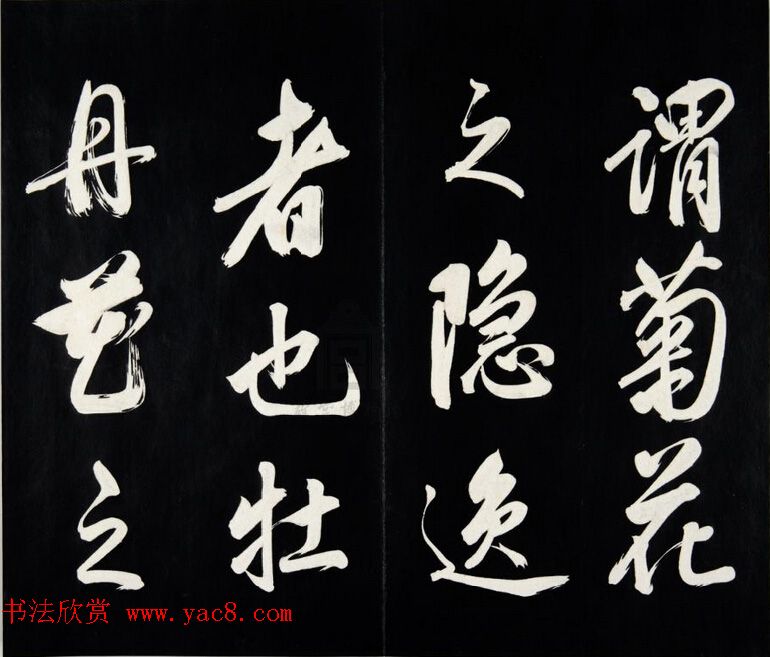 谓菊花
之隐逸
者也牡
丹花之
书法欣赏 www.yac8.com